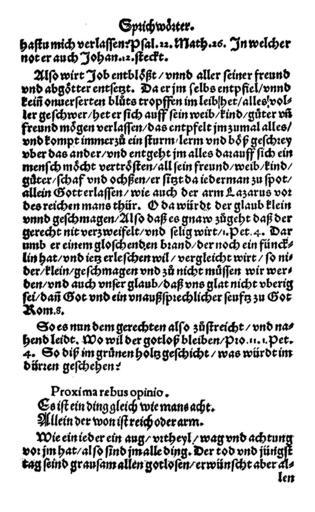 Sprichwörter.
hastu mich verlassen? Psal. 22. Math. 26. In welcher
not er auch Johan. 12. steckt.
Also wirt Job entblößt/ vnnd aller seiner freund
vnd abgötter entsetzt. Da er jm selbs entpfiel/vnnd
keiñ onuerserten blůts tropffen im leib/het/alles vol-
ler geschwer/het er sich auff sein weib/kind/güter vñ
freund mögen verlassen/das entpfelt jm zumal alles/
vnd kompt immerzů ein sturm/lerm vnd böß geschrey
vber das ander/vnd entgeht jm alles darauff sich ein
mensch möcht vertrösten/all sein freund/weib/kind/
güter/schaf vnd ochßen/er sitzt da iederman zu spot/
allein Gott erlassen/wie auch der arm Lazarus vor
des reichen mans thür. O da würdt der glaub klein
vnnd geschmagen/Also daß es gnaw zůgeht daß der
gerecht nit verzweifelt/vnd selig wirt/1. Pet. 4. Dar
umb er einem gloschenden brand/der noch ein fünck-
lin hat/vnd ietz erleschen wil/vergleicht wirt/so ni-
der/klein/geschmagen vnd zů nicht müssen wir wer-
den/vnd auch vnser glaub/daß vns glat nicht vberig
sei/dañ Got vnd ein vnaußsprechlicher seufftz zu Got
Rom. 8.
So es nun dem gerechten also zůstreicht/vnd na-
hend leidt. Wo wil der gotloß bleiben/Pro. 11. 1. Pet.
4. So diß im grünen holtz geschicht/was würdt im
dürren geschehen?
Proxima rebus opinio.
Es ist ein ding gleich wie mans acht.
Allein der won ist reich oder arm.
Wie ein ieder ein aug/vrtheyl/wag vnd achtung
vor jm hat/also sind jm alle ding. Der tod vnd jüngst
tag seind grausam allen gotlosen/erwünscht aber al-
len